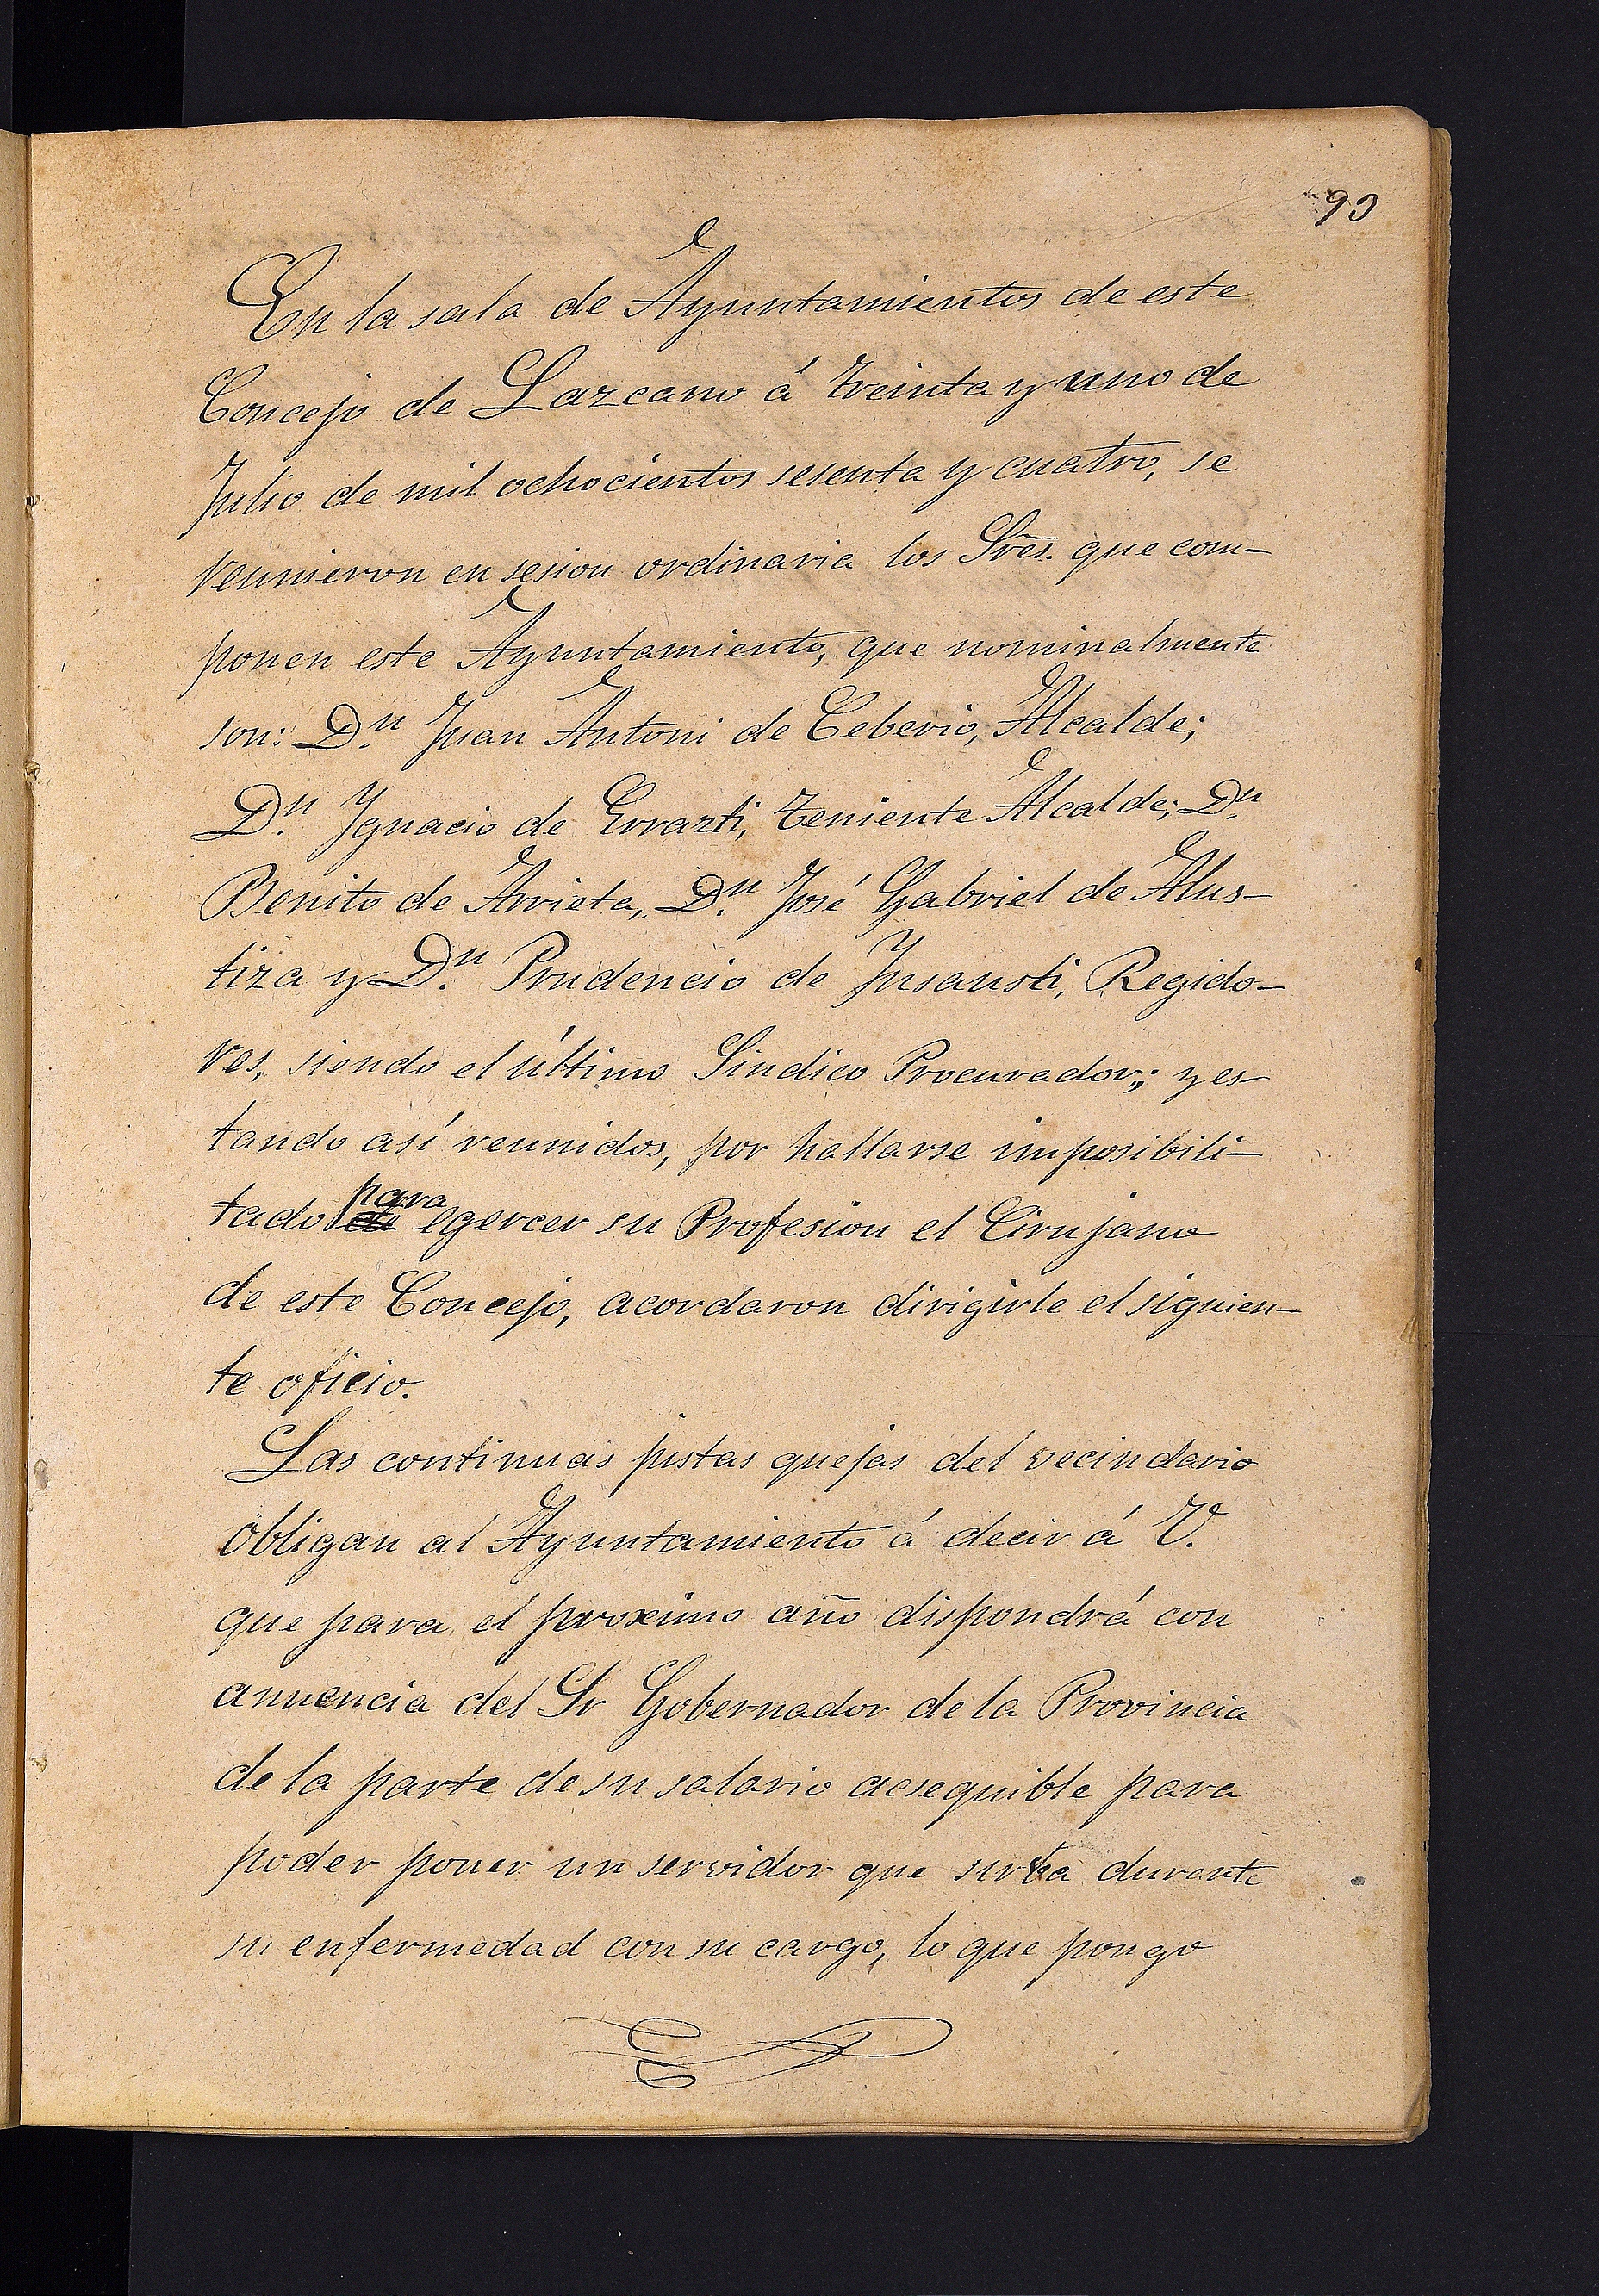 93
En la sala de Ayuntamientos de este
Concejo de Lazcano á treinta y uno de
Julio de mil ochocientos sesenta y cuatro, se
reunieron en sesion ordinaria los Sres. que com-
ponen este Ayuntamiento, que nominalmente
son: Dn. Juan Antoni de Ceberio, Alcalde;
Dn. Ygnacio de Errazti, teniente Alcalde; Dn.
Benito de Arrieta, Dn. José Gabriel de Alus-
tiza y Dn. Prudencio de Ynsausti, Regido-
res, siendo el último Sindico Procurador; y es-
tando así reunidos, por hallarse imposibili-
tado de para egercer su Profesion el Cirujano
de este Concejo, acordaron dirigirle el siguien-
te oficio.
Las continuas justas quejas del vecindario
obligan al Ayuntamiento á decir á V.
que para el proximo año dispondrá con
anuencia del Sr Gobernador de la Provincia
de la parte de su salario acsequible para
poder poner un servidor que sirva durante
su enfermedad con su cargo, lo que pongo